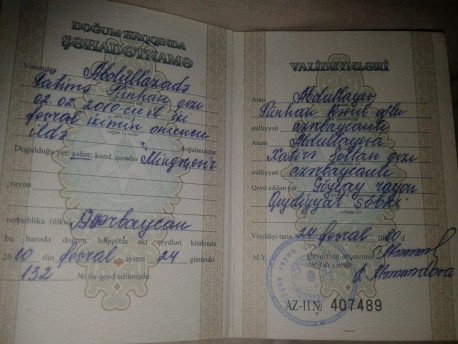 DOĞUM HAQQINDA
ŞƏHADƏTNAMƏ
Vətəndaş Abdullazadə
Fatimə Pünhan qızı
02.02.2010-cu il iki
fevral iki min onuncu
ildə doğulmuşdur.
Doğulduğu yer: şəhər, kənd, qəsəbə Mingəçevir
rayon
respublika (ölkə) Azərbaycan
bu barədə doğum haqqında akt qeydləri kitabında
2010 ilin fevral ayının 24 günündə
132 № ilə qeyd edilmişdir.
VALİDEYNLƏRİ
Atası Abdullayev
Pünhan oğlu
milliyyəti azərbaycanlı
Anası Abdullayeva
Soltan qızı
milliyyəti azərbaycanlı
Qeyd edilən yer Göyçay rayon
Qeydiyyat şöbəsi
Verildiyi tarix 24 fevral 2010
M.Y.
AZ-II № 407489